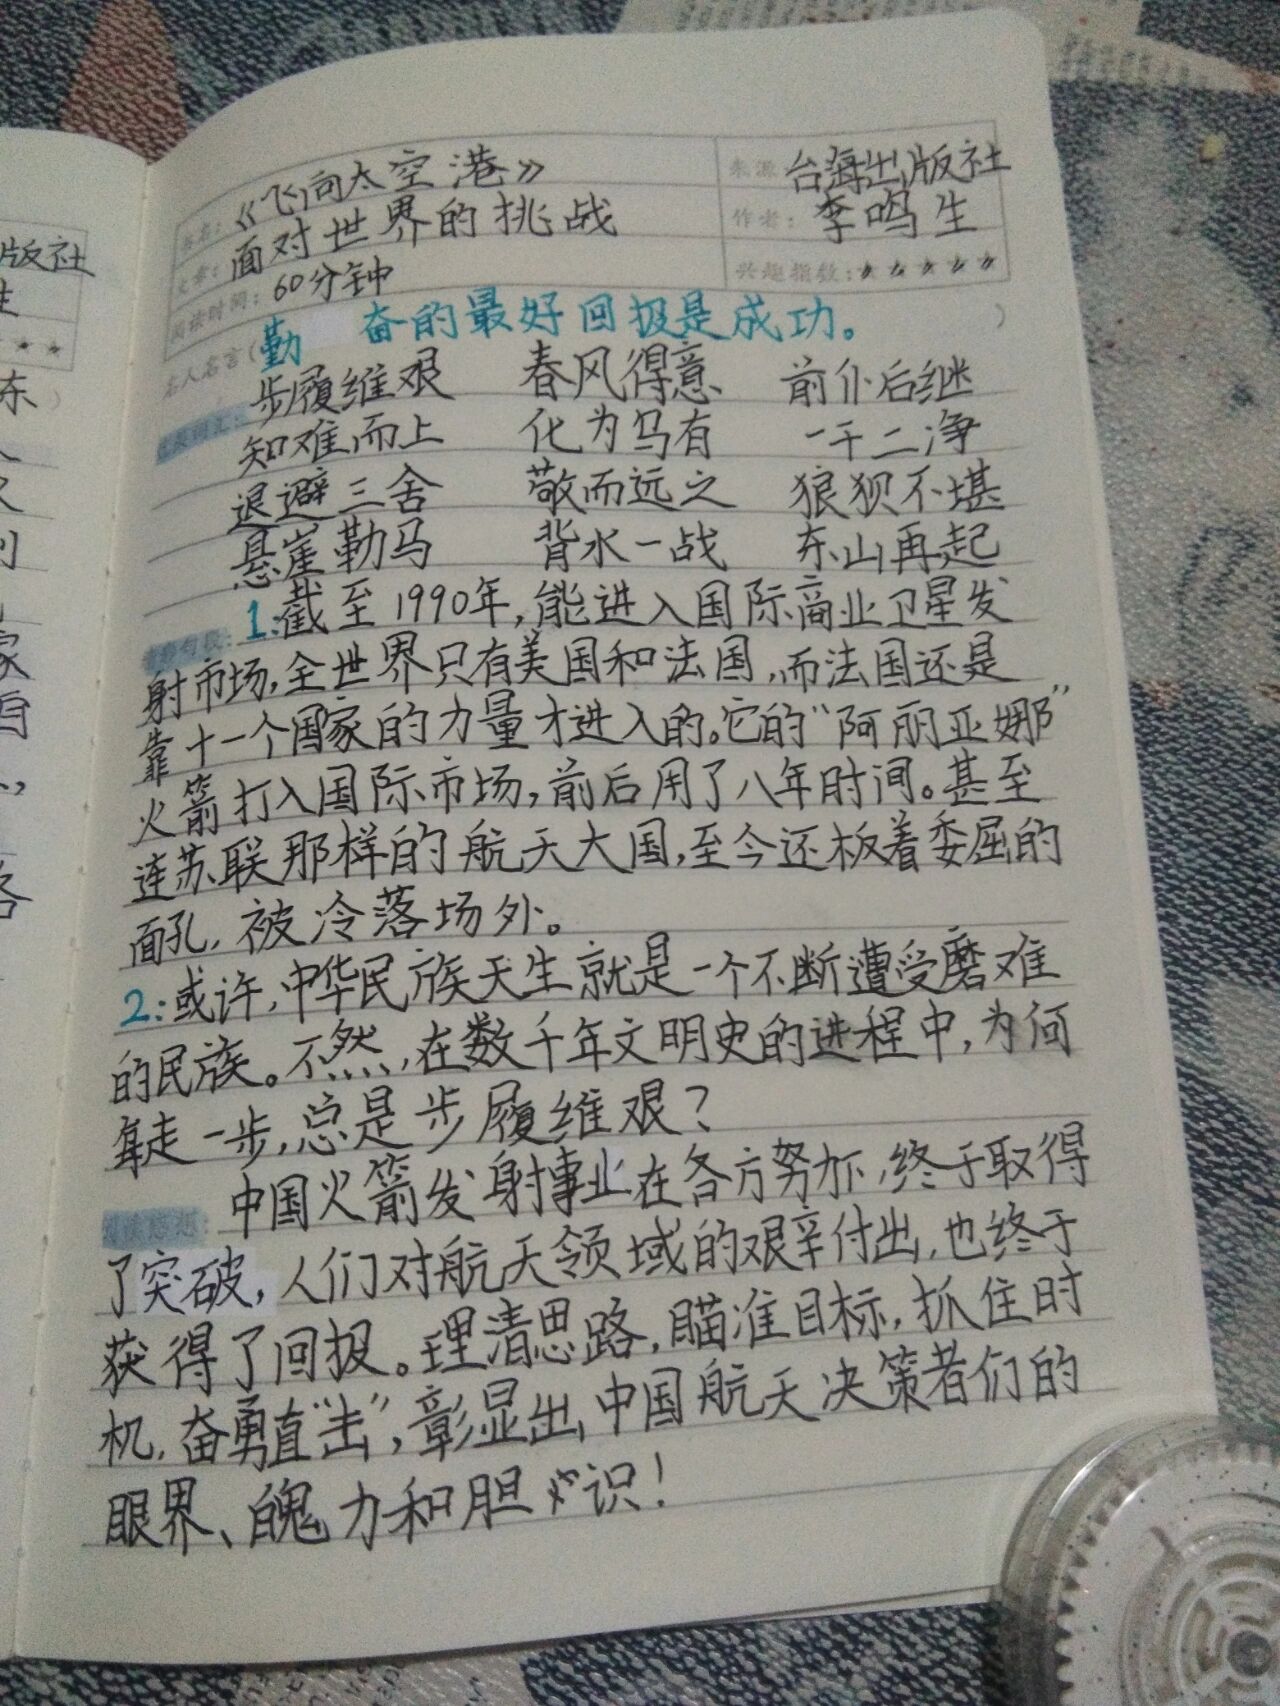 版社
生
东
书名：《飞向太空港》 来源：台海出版社
文章：面对世界的挑战 作者：李鸣生
阅读时间：60分钟 兴趣指数：★★★★★
名人名言（勤 奋的最好回报是成功。）
步履维艰 春风得意 前仆后继
知难而上 化为乌有 一干二净
退避三舍 敬而远之 狼狈不堪
悬崖勒马 背水一战 东山再起
1:截至1990年,能进入国际商业卫星发
射市场,全世界只有美国和法国,而法国还是
靠十一个国家的力量才进入的。它的“阿丽亚娜”
火箭打入国际市场,前后用了八年时间。甚至
连苏联那样的航天大国,至今还板着委屈的
面孔,被冷落场外。
2:或许,中华民族天生就是一个不断遭受磨难
的民族。不然,在数千年文明史的进程中,为何
每走一步,总是步履维艰?
阅读感想：中国火箭发射事业在各方努力下,终于取得
了突破,人们对航天领域的艰辛付出,也终于
获得了回报。理清思路,瞄准目标,抓住时
机,奋勇直“击”,彰显出中国航天决策者们的
眼界、魄力和胆识!